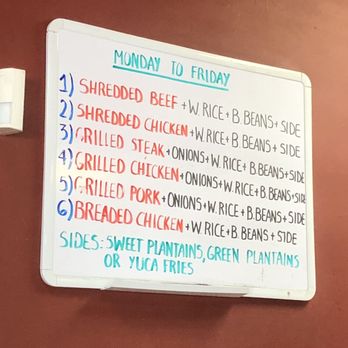 MONDAY TO FRIDAY
1) SHREDDED BEEF + W.RICE + B.BEANS + SIDE
2) SHREDDED CHICKEN + W.RICE + B.BEANS + SIDE
3) GRILLED STEAK + ONIONS + W.RICE + B.BEANS + SIDE
4) GRILLED CHICKEN + ONIONS + W.RICE + B.BEANS + SIDE
5) GRILLED PORK + ONIONS + W.RICE + B.BEANS + SIDE
6) BREADED CHICKEN + W RICE + B.BEANS + SIDE
SIDES: SWEET PLANTAINS, GREEN PLANTAINS
OR YUCA FRIES